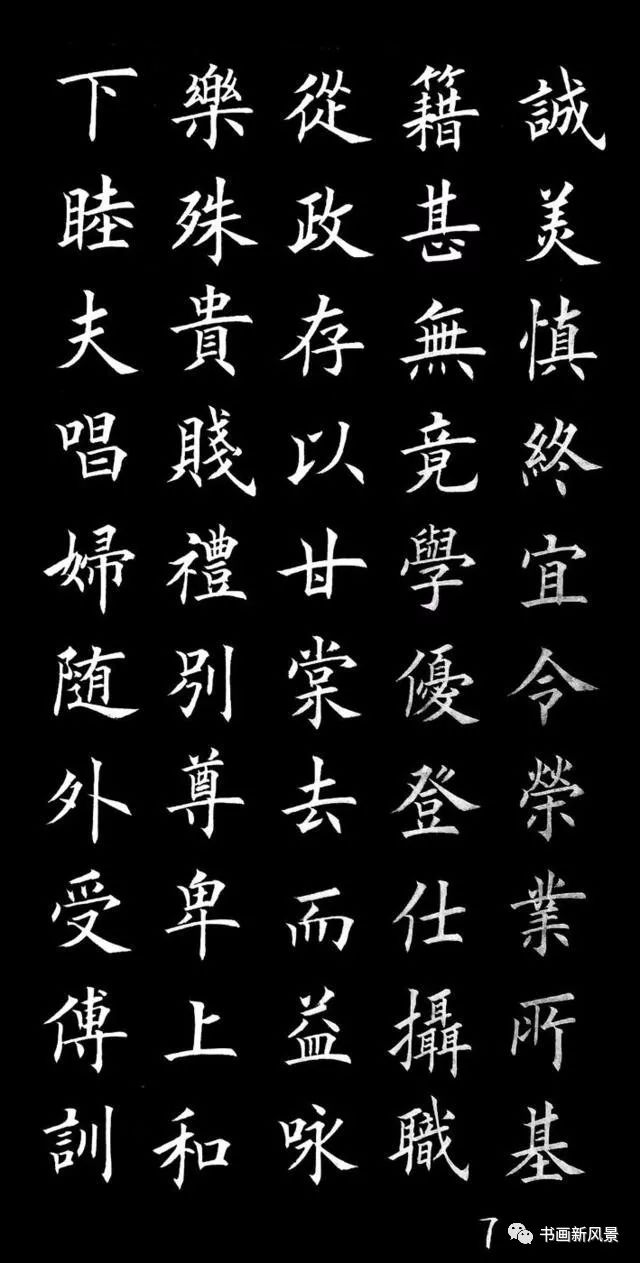 誠美慎終宜令榮業所基
籍甚無竟學優登仕攝職
從政存以甘棠去而益咏
樂殊貴賤禮別尊卑上和
下睦夫唱婦随外受傅訓
7
书画新风景